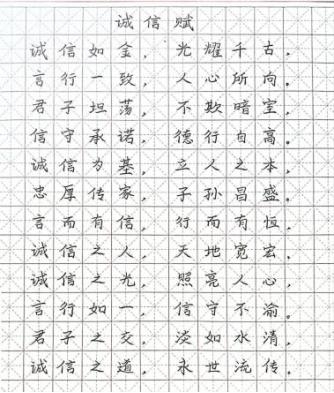 诚信赋
诚信如金，光耀千古。
言行一致，人心所向。
君子坦荡，不欺暗室。
信守承诺，德行自高。
诚信为基，立人之本，
忠厚传家，子孙昌盛。
言而有信，行而有恒。
诚信之人，天地宽宏。
诚信之光，照亮人心，
言行如一，信守不渝。
君子之交，淡如水清，
诚信之道，永世流传。